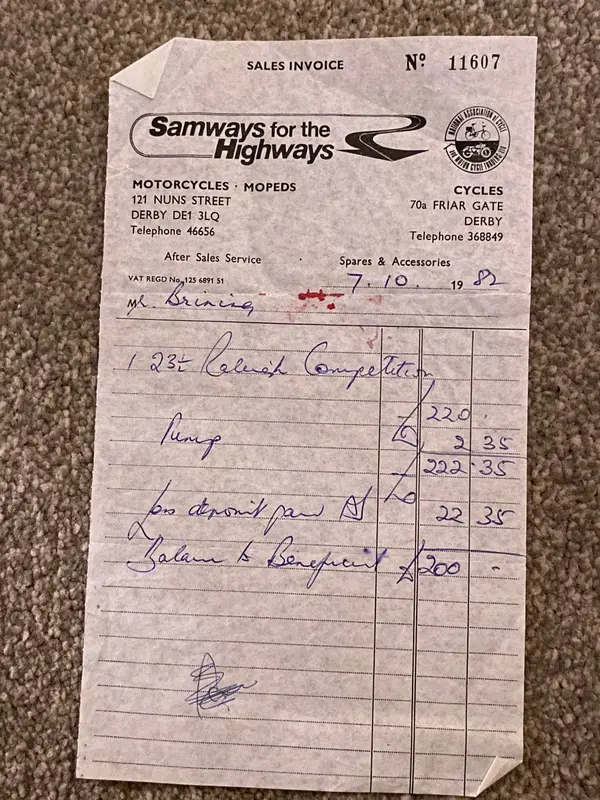 SALES INVOICE Nº 11607
Samways for the
Highways
NATIONAL ASSOCIATION OF CYCLE
MOTORCYCLES · MOPEDS
121 NUNS STREET
DERBY DE1 3LQ
Telephone 46656
CYCLES
70a FRIAR GATE
DERBY
Telephone 368849
After Sales Service · Spares & Accessories
VAT REGD No. 125 6891 51
7.10. 1982
Mr. Brining
1 23½ Raleigh Competition
£ 220 .
Pump 2 35
£ 222 . 35
Less deposit paid 22 35
Balance to Beneficial £ 200 -